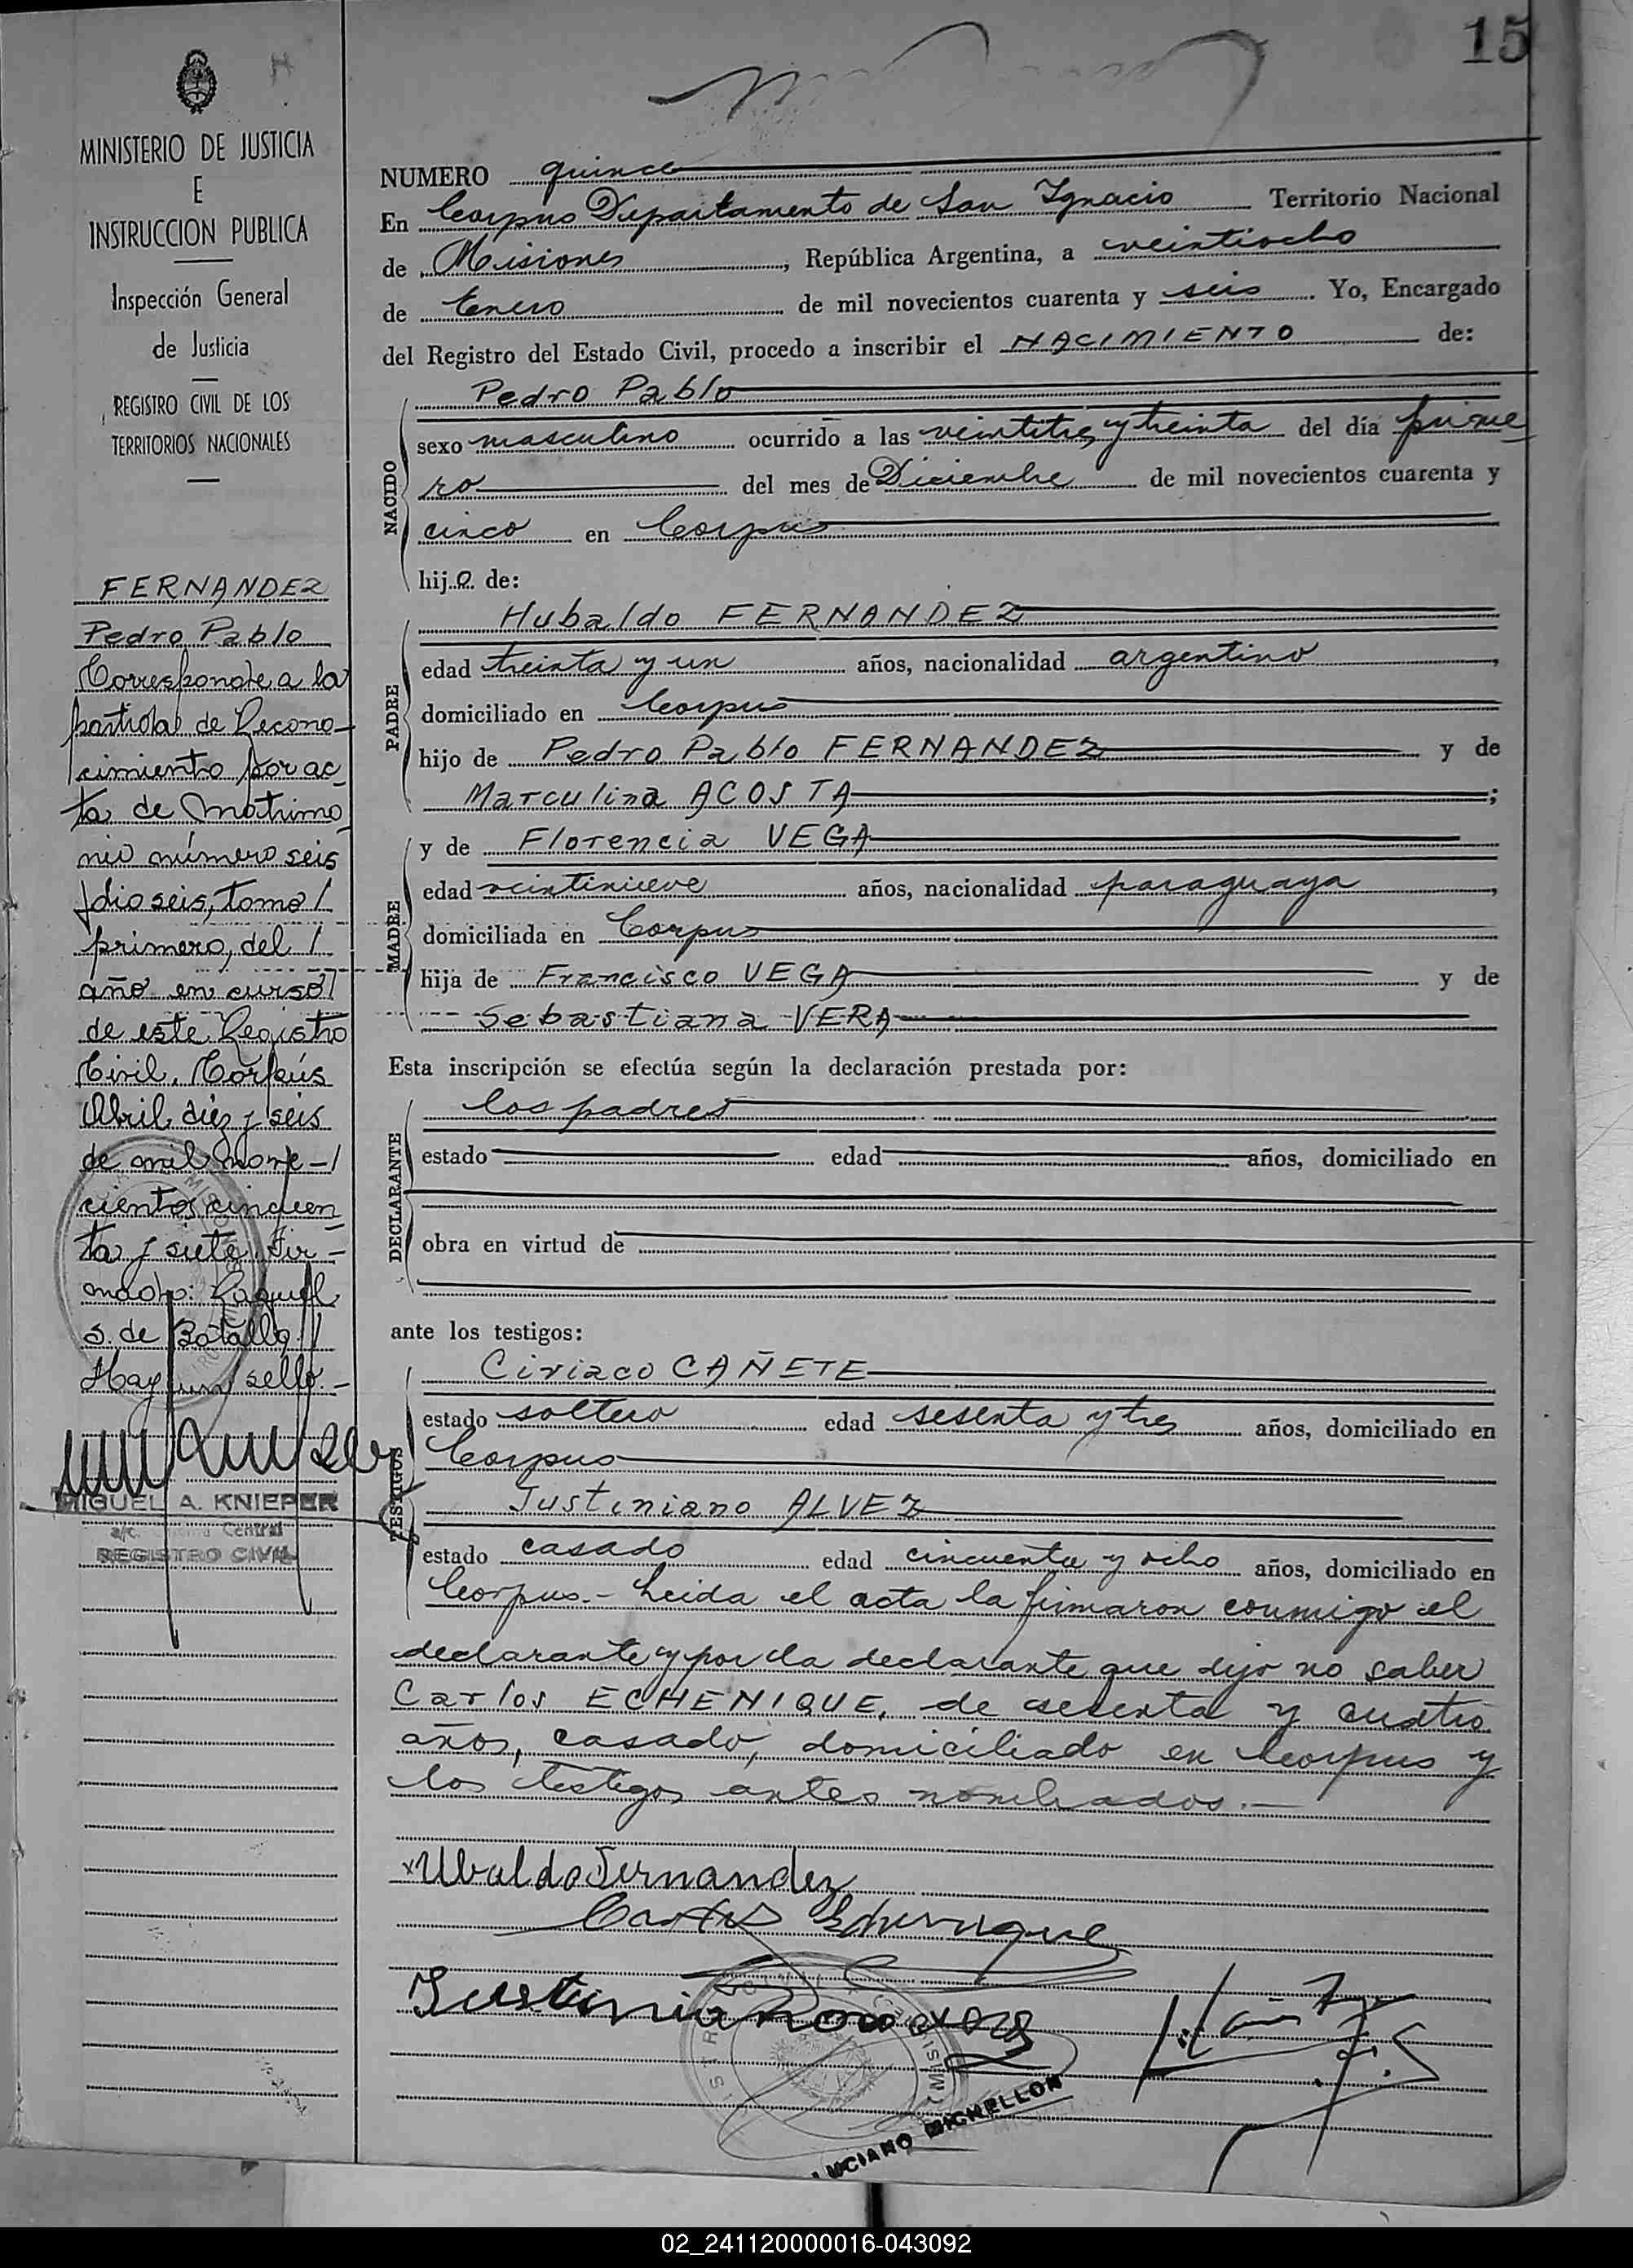 15
MINISTERIO DE JUSTICIA
E
INSTRUCCION PUBLICA
Inspección General
de Justicia
REGISTRO CIVIL DE LOS
TERRITORIOS NACIONALES
FERNANDEZ
Pedro Pablo
Corresponde a la
partida de Recono-
cimiento por ac
ta de matrimo
nio número seis
folio seis, tomo /
primero, del /
año en curso /
de este Registro
Civil. Corpus
Abril diez y seis
de mil nove-/
cientos cincuen
ta y siete. Fir-
mado: Raquel
S. de Batalla. //
Hay un sello.-
MIGUEL A. KNIEPER
a/c. Central
REGISTRO CIVIL
NUMERO quince
En Corpus Departamento de San Ignacio Territorio Nacional
de Misiones, República Argentina, a veintiocho
de Enero de mil novecientos cuarenta y seis. Yo, Encargado
del Registro del Estado Civil, procedo a inscribir el NACIMIENTO de:
NACIDO
Pedro Pablo
sexo masculino ocurrido a las veintitres y treinta del día prime
ro del mes de Diciembre de mil novecientos cuarenta y
cinco en Corpus
hijo de:
PADRE
Hubaldo FERNANDEZ
edad treinta y un años, nacionalidad argentino,
domiciliado en Corpus
hijo de Pedro Pablo FERNANDEZ y de
Marculina ACOSTA;
MADRE
y de Florencia VEGA
edad veintinueve años, nacionalidad paraguaya,
domiciliada en Corpus
hija de Francisco VEGA y de
Sebastiana VERA
Esta inscripción se efectúa según la declaración prestada por:
DECLARANTE
los padres
estado edad años, domiciliado en
obra en virtud de
ante los testigos:
TESTIGOS
Ciriaco CAÑETE
estado soltero edad sesenta y tres años, domiciliado en
Corpus
Justiniano ALVEZ
estado casado edad cincuenta y ocho años, domiciliado en
Corpus.- Leida el acta la firmaron conmigo el
declarante y por la declarante que dijo no saber
Carlos ECHENIQUE, de sesenta y cuatro
años, casado, domiciliado en Corpus y
los testigos antes nombrados.-
x Ubaldo Fernandez
Carlos Echenique
Justiniano
LUCIANO MICHELLON
02_241120000016-043092